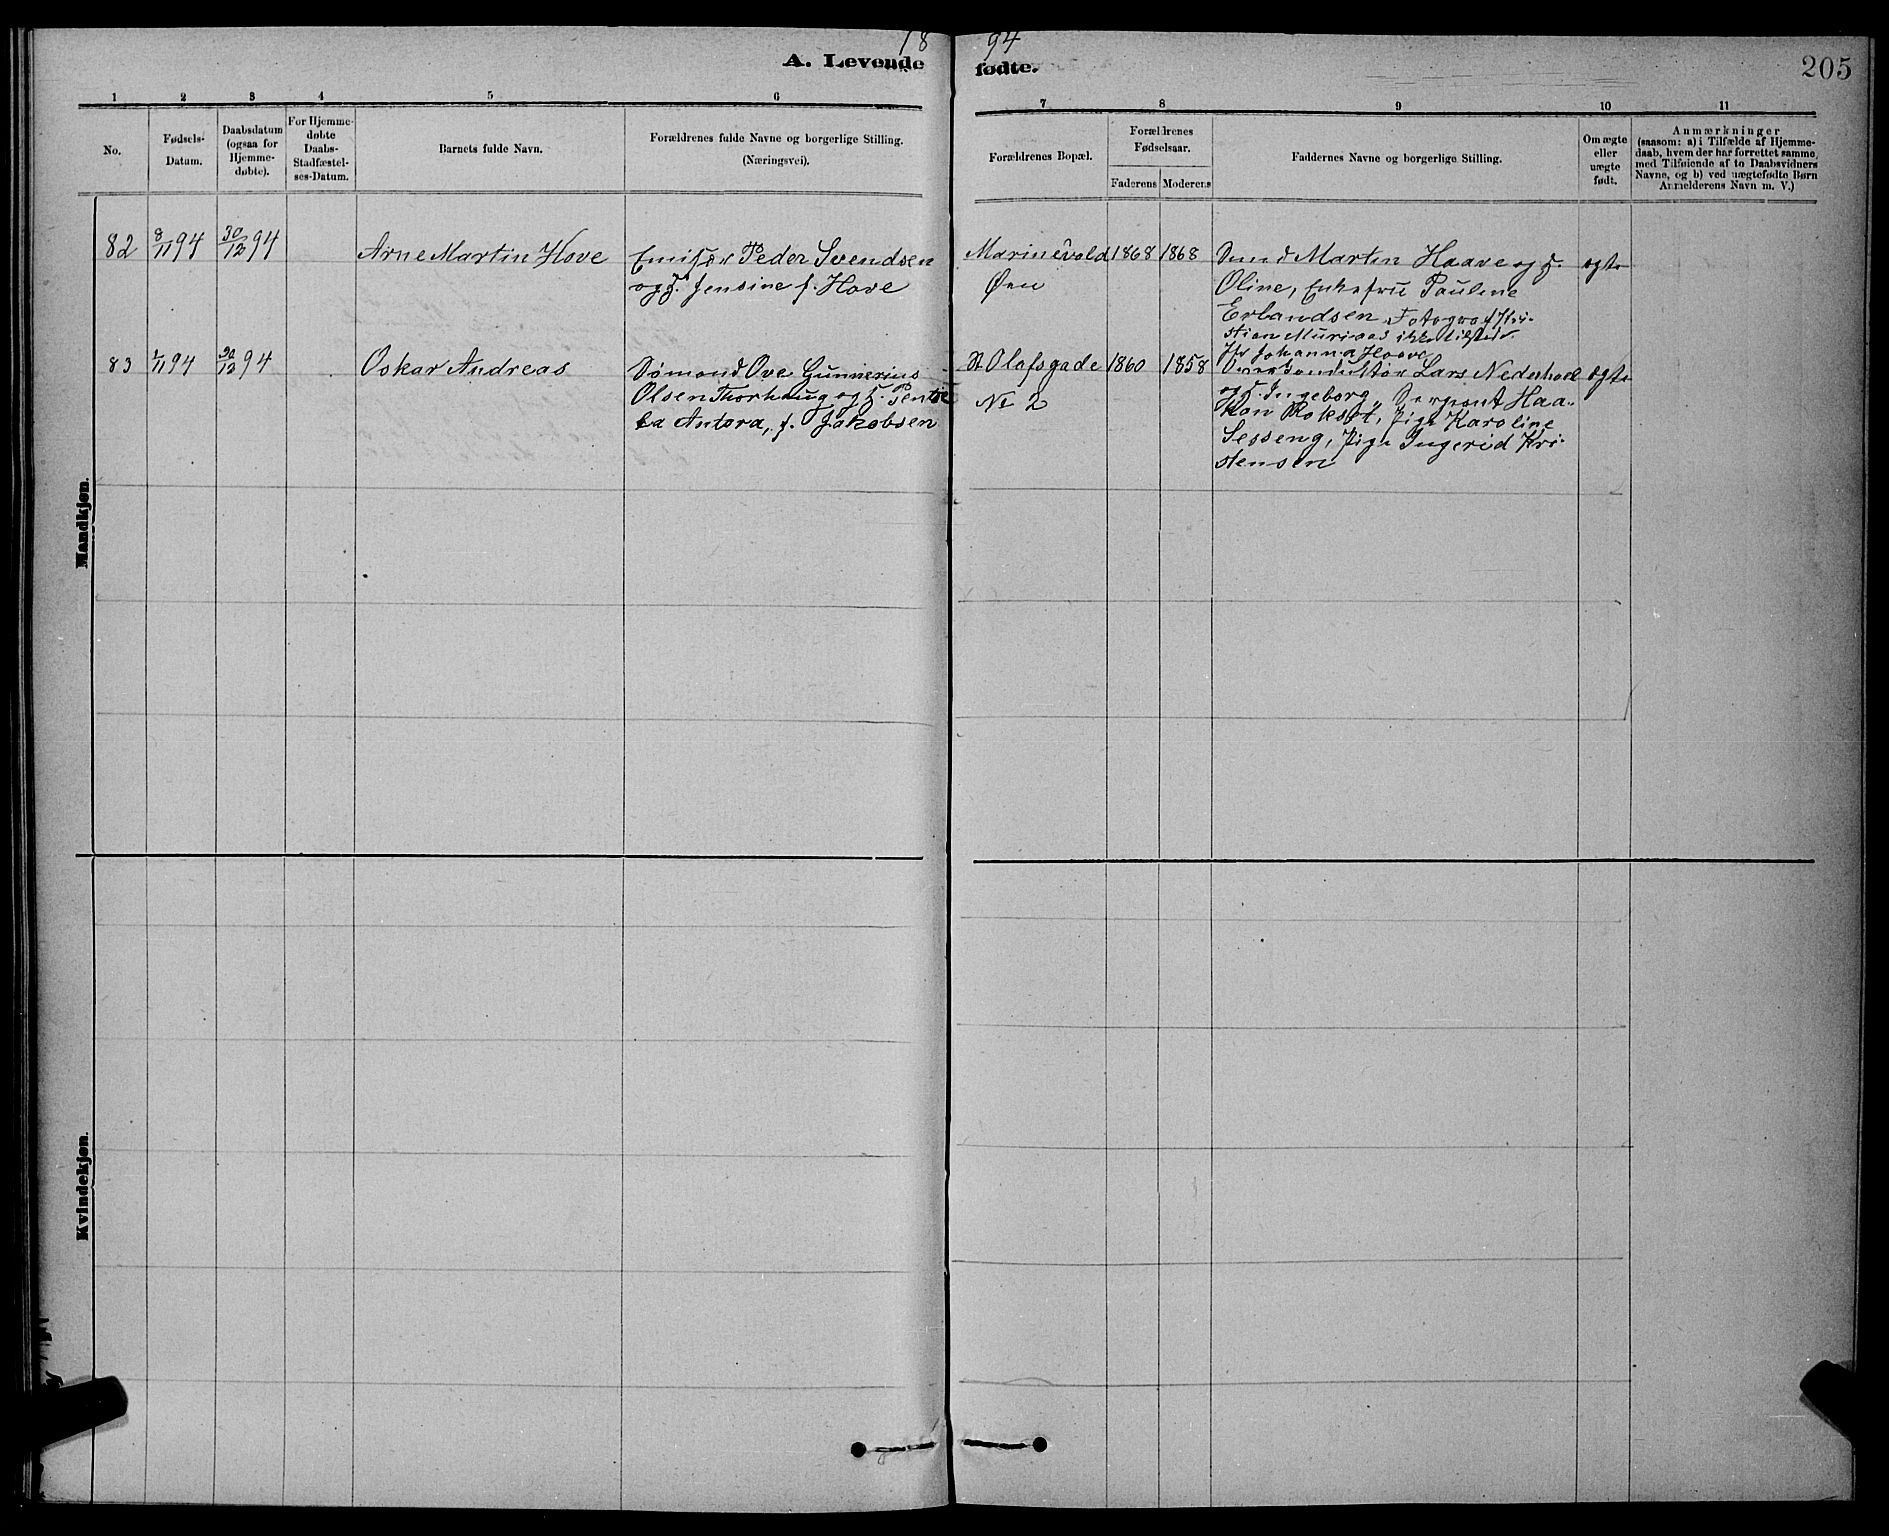 18 94
A. Levende fødte.
205
1 2 3 4 5 6 7 8 9 10 11
No.
Fødsels-
Datum.
Daabsdatum
(ogsaa for
Hjemme-
døbte).
For Hjemme-
døbte
Daabs-
Stadfæstel-
ses-Datum.
Barnets fulde Navn.
Forældrenes fulde Navne og borgerlige Stilling.
(Næringsvei).
Forældrenes Bopæl.
Forældrenes
Fødselsaar.
Faderens Moderens
Faddernes Navne og borgerlige Stilling.
Om ægte
eller
uægte
født.
Anmærkninger
(saasom: a) i Tilfælde af Hjemme-
daab, hvem der har forrettet samme,
med Tilføiende af to Daabsvidners
Navne, og b) ved uægtefødte Børn
Anmelderens Navn m. V.)
Mandkjøn.
82 8/11 94 30/12 94 Arne Martin Hove
Emisær Peder Svendsen
og H. Jensine f. Hove
Marinevold
Øen
1868 1868
Martin Haave og H.
Oline, Enkefru Pauline
Erlandsen, Fotograf Kri-
stian ikke tilstede.
Johanna Haave
ægte
83 94 30/12 94 Oskar Andreas
Ove Gunnerius
Olsen Thorhaug og H.
Antora, f. Jakobsen
St Olafsgade
No 2
1860 1858
Lars Nederhoel
og H. Ingeborg, Sergeant Haa-
kon Pige Karoline
Sesseng, Pige Ingerid Kri-
stensen
ægte
Kvindekjøn.